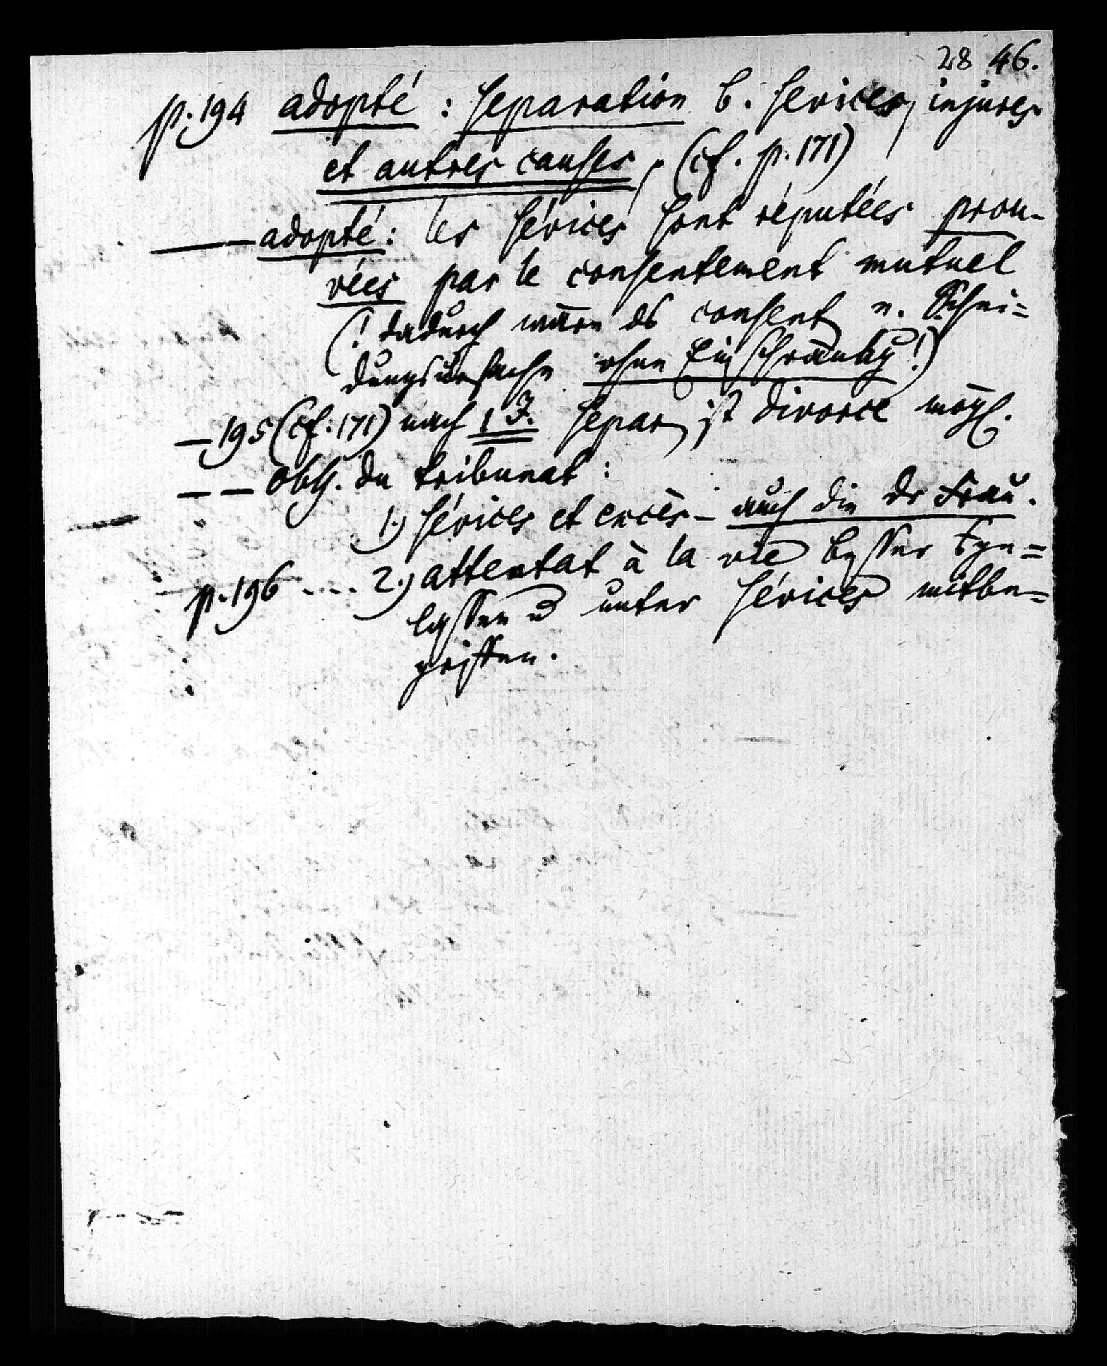 28 46.
p. 194 adopté : separation b. sevices, injures
et autres causes, (cf. p. 171)
— adopté : les sévices sont réputées prou-
vées par le consentement mutuel
(! dadurch wären ds consent e. Schei-
dungsursache ohne Einschränkg!)
— 195 (cf. 171) nach 1 J. separ ist divorce mögl.
— — obs. du tribunat :
1.) sévices et excès – auch die dr Frau.
p. 196 .... 2.) attentat à la vie besser
unter sévices mitbe-
griffen.